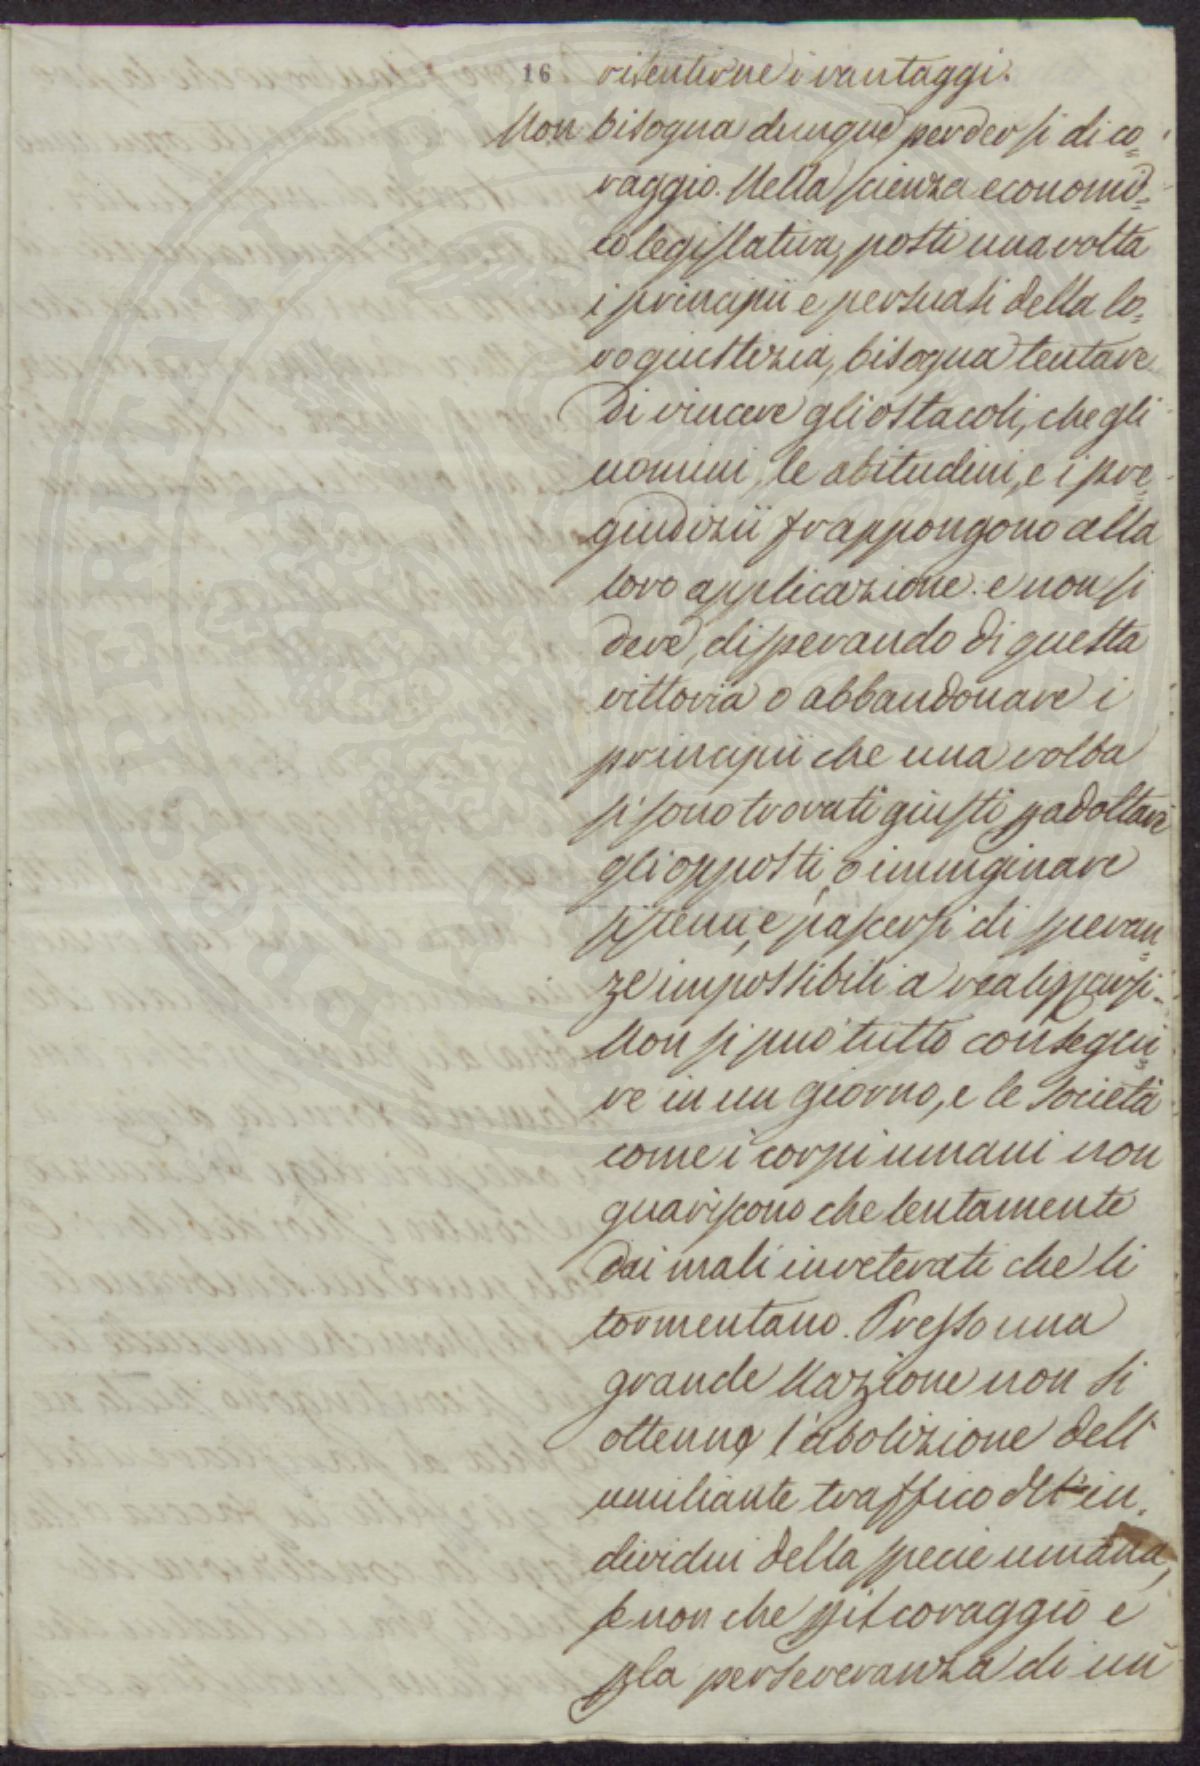 16 risentirne i vantaggi.
Non bisogna dunque perdersi di co=
raggio. Nella scienza economi=
co legislativa, posti una volta
i principii e persuasi della lo=
ro giustezza, bisogna tentare
di vincere gli ostacoli, che gli
uomini, le abitudini, e i pre=
giudizii frappongono alla
loro applicazione: e non si
deve, disperando di questa
vittoria o abbandonare i
principii che una volta
si sono trovati giusti p adottare
gli opposti, o immaginare
sistemi, e pascersi di speran=
ze impossibili a realizzarsi.
Non si può tutto consegui=
re in un giorno, e le società
come i corpi umani non
guariscono che lentamente
dai mali inveterati che li
tormentano. Presso una
grande Nazione non si
ottenne l'abolizione dell'
umiliante traffico del in=
dividui della specie umana,
se non che p il coraggio e
p la perseveranza di un
PROSPERITATI PUBLICAE